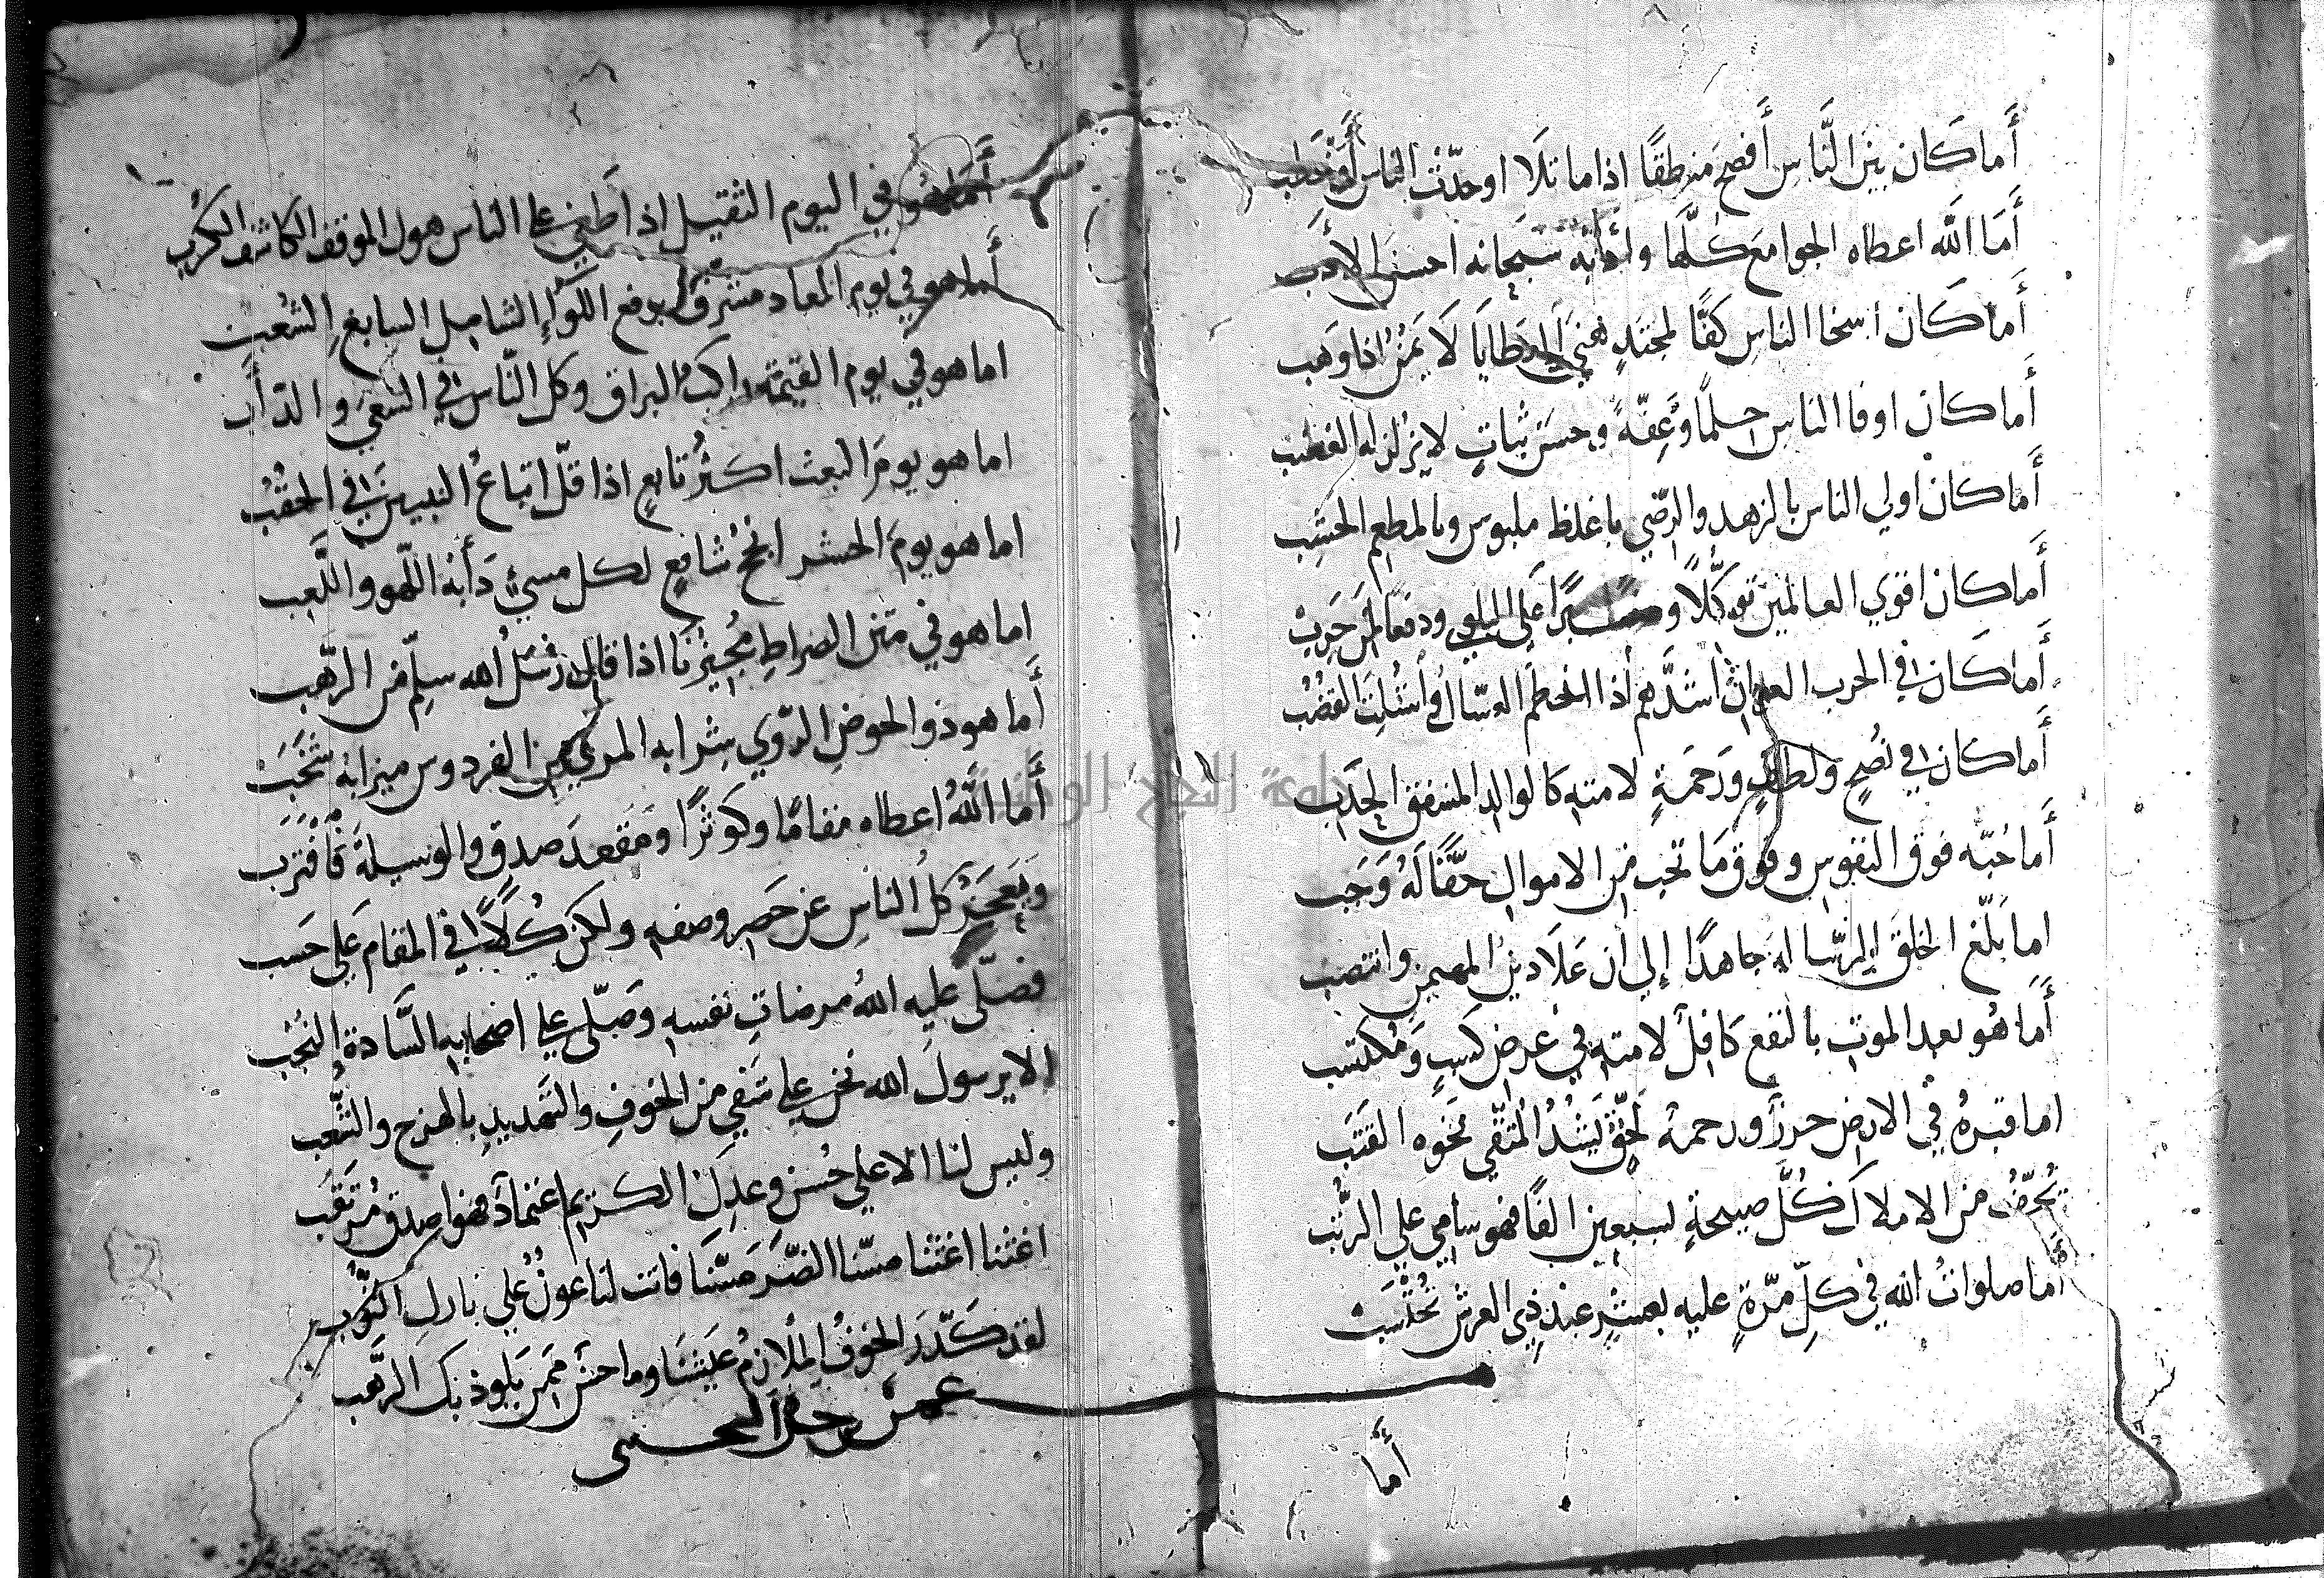 أَما كَان بينَ النَّاسِ أَفصحَ منطقًا اذا ما تَلَا او حدّث الناس أَو خَطب
أَمَا اللَّه اعطاه الجوامعَ كلَّها وأدّبَهُ سبحانه احسنَ الأدب
أَما كَان اسخا الناسِ كفًّا لمجتدٍ هنيَ العَطايَا لَا يَمنُّ اذا وهب
أَما كان اوفا الناسِ حلمًا وعِفّةً وحسنَ ثباتٍ لا يزلزله الغضب
أَما كان اولي الناس بالزهد والرّضي باغلظ ملبوس وبالمطعم الخشِب
أَما كان اقوي العالمين توكُّلًا وصبرًا على البلوي ودفعًا لمن حَرِبْ
أَما كَان في الحرب العوان أشدَّهم اذا انحطم العسّال أو أنثلت القضُبْ
أَما كَان في نُصحٍ ولطفٍ ورَحمَةٍ لامتهِ كالوالدِ المشفقِ الحَدِب
أَما حُبّه فوق النفوسِ وفوقَ مَا تحب من الاموالِ حقًّا لهُ وَجَب
اما بَلّغ الخلقَ الرّسالةَ جاهدًا إلي ان عَلَا دينُ المهيمنِ وانتصب
أَما هُو بعد الموتِ بالنفع كافلٌ لامتهِ في عرضِ كسبٍ ومُكتسب
اما قبرهُ في الارضِ حرزٌ ورحمةٌ لَحقّ يَشُدُ المُتّقي نحَوه القَتَب
تُحفّ من الاملاك كُلَّ صبيحةٍ بسبعين الفًا فهو سامي علي الرتُب
أما صلواتُ الله في كلِّ مرّةٍ عليه بعشرٍ عند ذِي العرش تُحتَسَبْ
أما
أما هُو في اليوم الثقيل اذا طغي علي الناس هول الموقفِ الكاشف الكُرَب
أما هو في يوم المعاد مشرفٌ برفع اللوآءِ الشامل السابغِ الشُعب
اما هو في يوم القيمة راكبُ البراق وكل النّاس في السّعي والدّأَب
اما هو يومَ البعث اكثرُ تابعٍ اذا قلّ اتباعُ النبيين في الحقُبْ
اما هو يومَ الحشر انجحُ شافعٍ لكل مسيءٍ دَأبُهُ اللّهو واللَّعب
اما هو في متن الصراطِ مُجيزنَا اذا قال رسْلُ الله سلِّم من الرّهب
أَما هو ذو الحوضِ الرّوي شِرابه المرئي من الفردوس ميزابه شَخَبَ
أَما اللَّهُ اعطاه مقامًا وكوثرًا ومَقعدَ صدقٍ والوسيلةَ فاقْتَرب
ويَعجَزُ كلُ الناسِ عن حَصرِ وصفهِ ولكنّ كُلًّا في المقام عَلي حَسب
فصلّى عليه اللهُ مرضاتِ نفسهِ وصَلّى علي اصحابهِ السَّادةِ النُجُب
الا يرسولَ الله نحن علي شفي من الخوفِ والتَهديدِ بالهرج والشَّغب
وليس لنا الا علي حُسن وعدِكَ الكريم اعتمادٌ فهوا صدق مُرتَقَب
اغثنا اغثنا مسّنا الضّر مَسّنَا فانت لنا عونٌ علي نازلِ النُّوَب
لقد كَدّرَ الخوفُ المُلازمُ عَيشَنَا وما حسَنٌ ممن يَلوذ بك الرَّهب